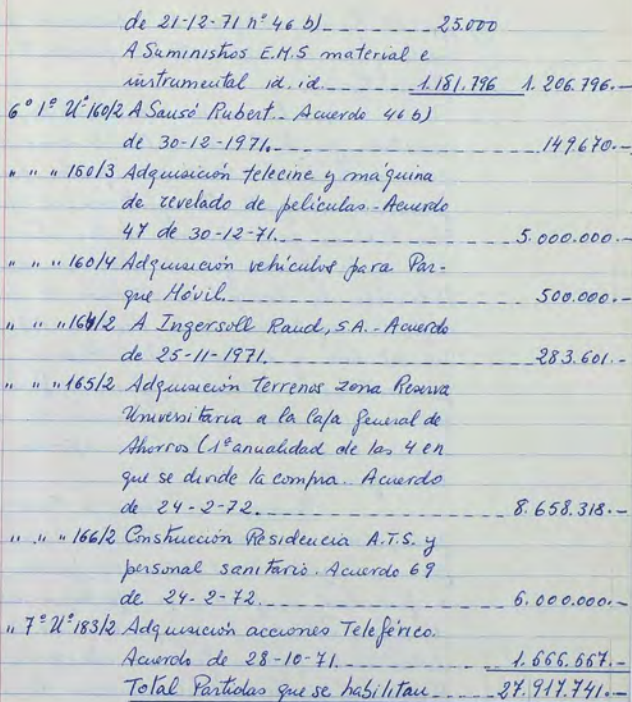 de 21-12-71 nº 46 b) 25.000
A Suministros E.M.S material e
instrumental id. id. 1.181.796 1.206.796.-
6º 1º Uº 160/2 A Sausó Rubert. Acuerdo 46 b)
de 30-12-1971. 149.670.-
" " " 160/3 Adquisición telecine y máquina
de revelado de películas.- Acuerdo
47 de 30-12-71. 5.000.000.-
" " " 160/4 Adquisición vehículos para Par-
que Móvil. 500.000.-
" " " 164/2 A Ingersoll Raud, S.A.- Acuerdo
de 25-11-1971. 283.601.-
" " " 165/2 Adquisición terrenos zona Reserva
Universitaria a la Caja General de
Ahorros (1ª anualidad de las 4 en
que se divide la compra. Acuerdo
de 24-2-72. 8.658.318.-
" " " 166/2 Construcción Residencia A.T.S. y
personal sanitario. Acuerdo 69
de 24-2-72. 6.000.000.-
" 7º Uº 183/2 Adquisición acciones Teleférico.
Acuerdo de 28-10-71. 1.666.667.-
Total Partidas que se habilitan 27.917.741.-